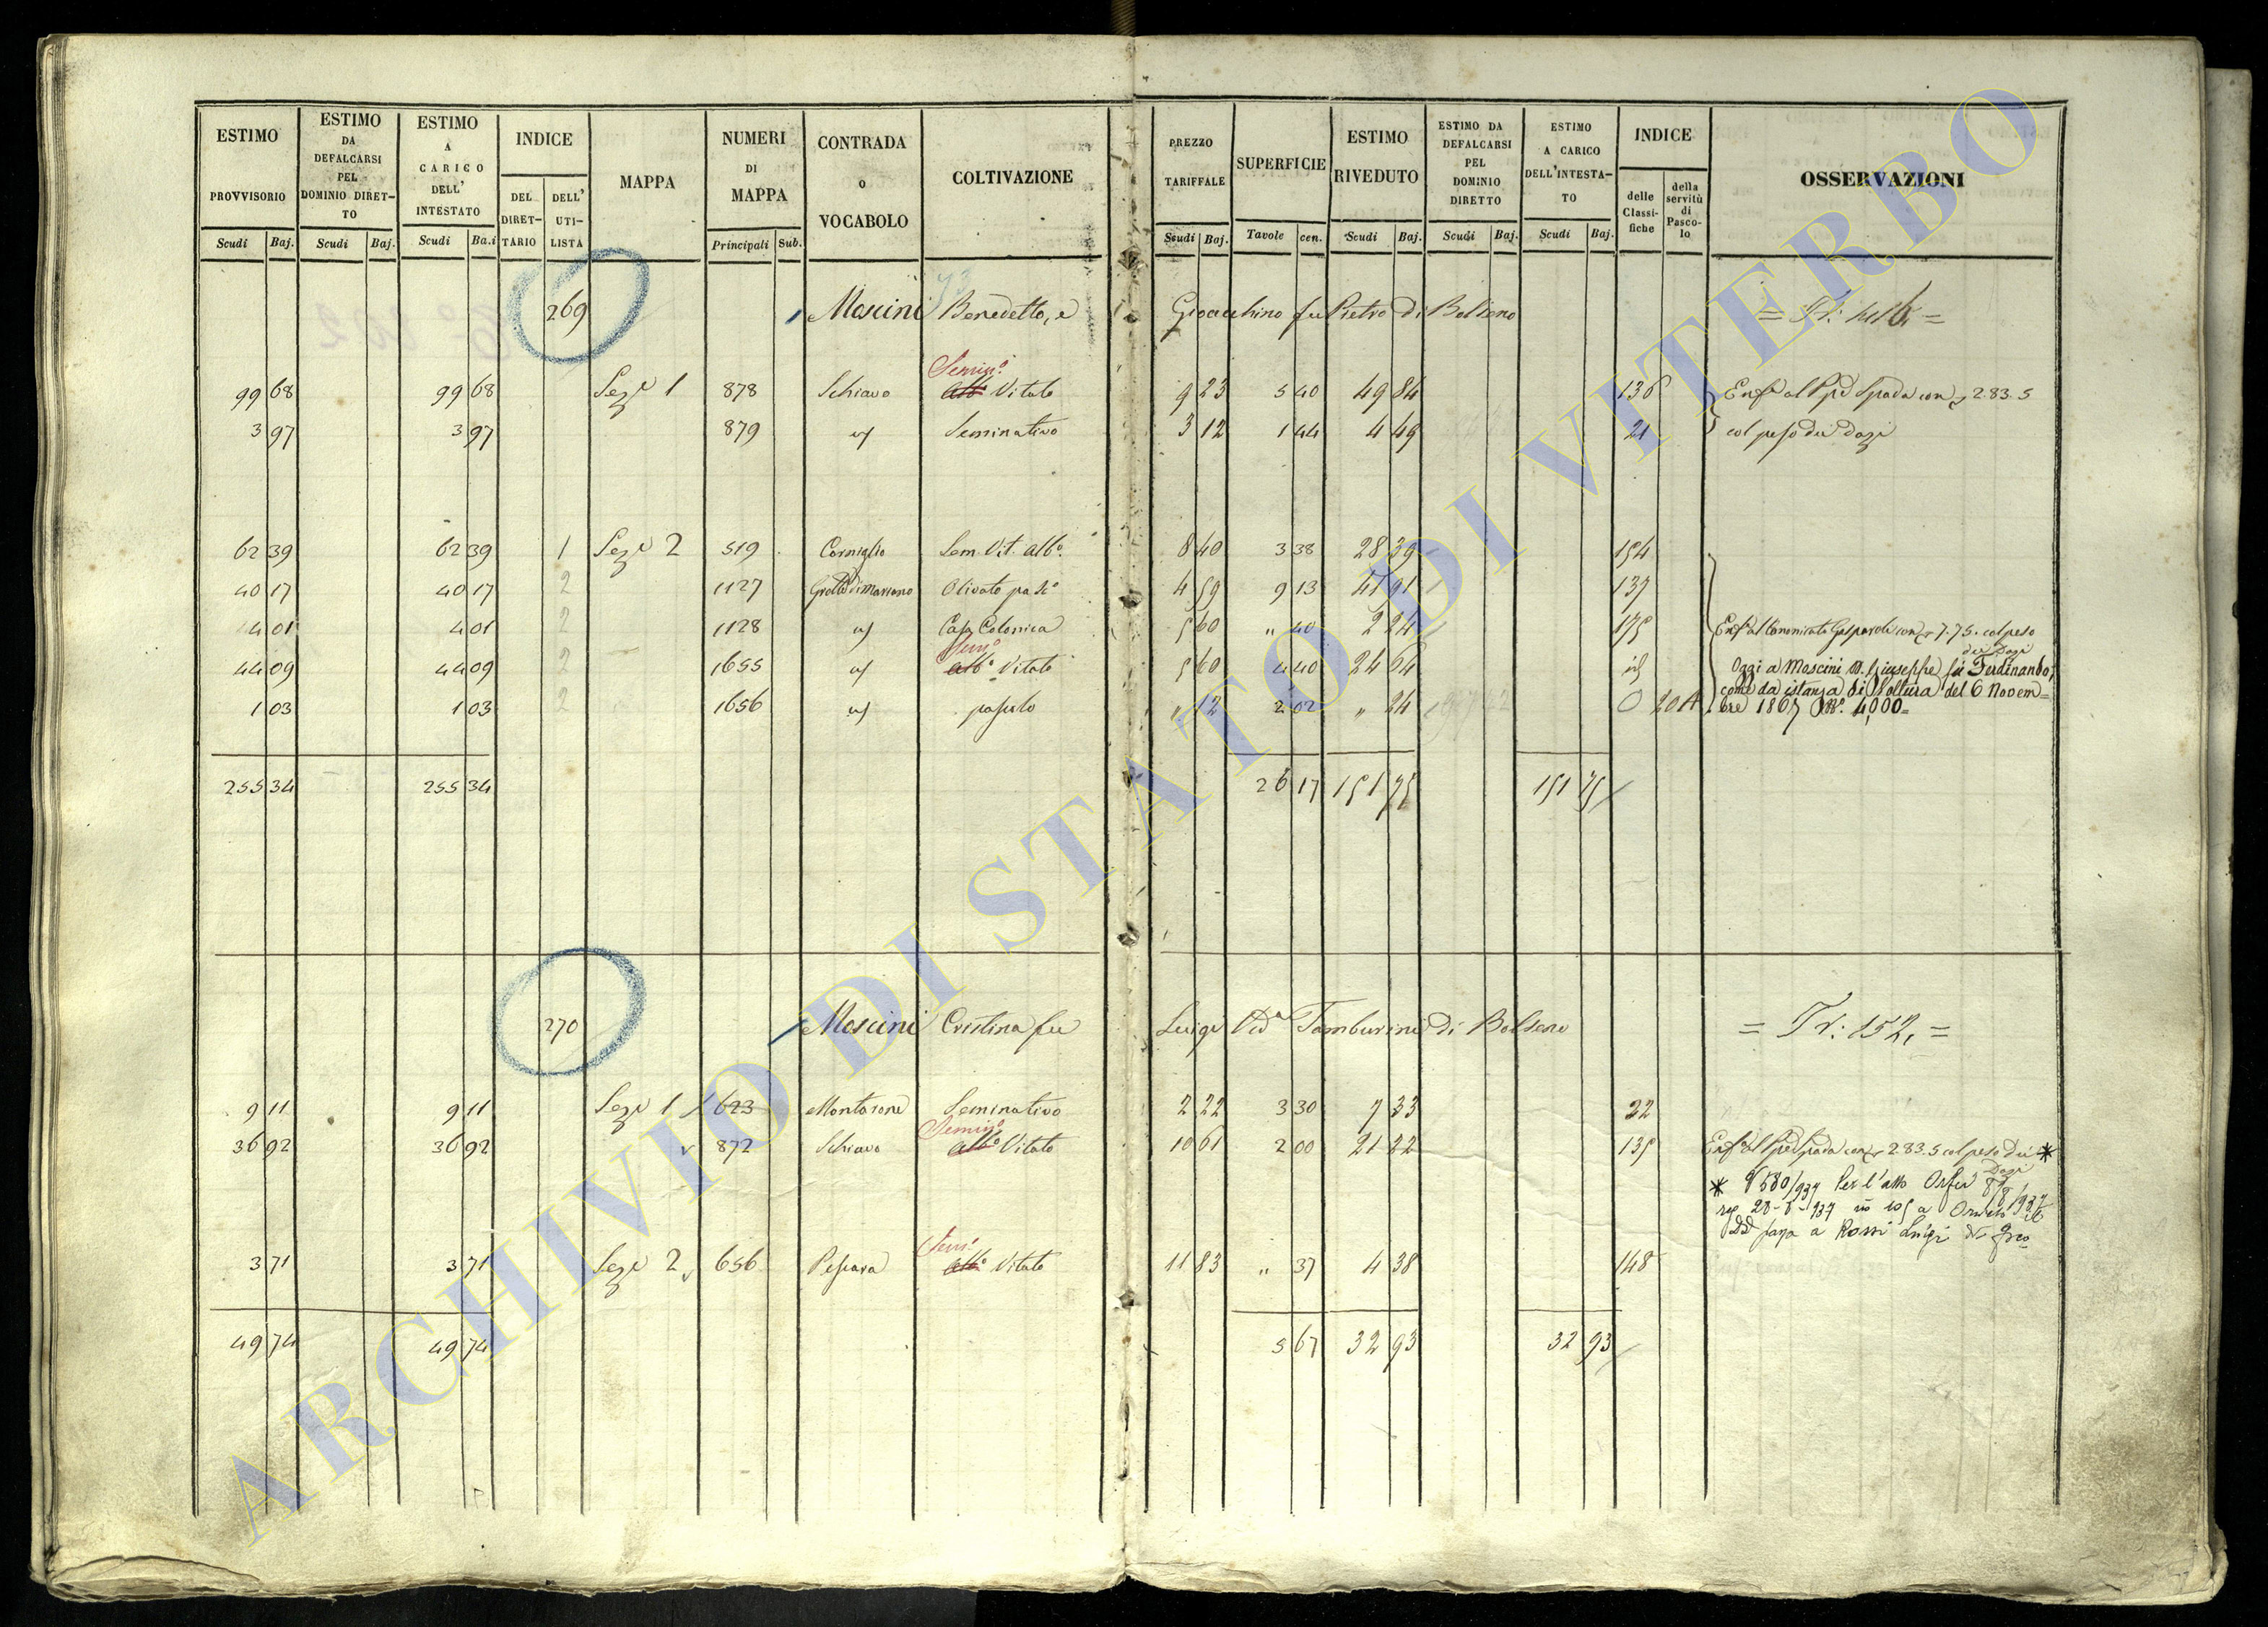 ESTIMO PROVVISORIO Scudi Baj.
ESTIMO DA DEFALCARSI PEL DOMINIO DIRETTO Scudi Baj.
ESTIMO A CARICO DELL' INTESTATO Scudi Ba.i
INDICE DEL DIRETTARIO DELL' UTILISTA
MAPPA
NUMERI DI MAPPA Principali Sub.
CONTRADA O VOCABOLO
COLTIVAZIONE
PREZZO TARIFFALE Scudi Baj.
SUPERFICIE Tavole cen.
ESTIMO RIVEDUTO Scudi Baj.
ESTIMO DA DEFALCARSI PEL DOMINIO DIRETTO Scudi Baj.
ESTIMO A CARICO DELL'INTESTATO Scudi Baj.
INDICE delle Classifiche della servitù di Pascolo
OSSERVAZIONI
269 Moscini Benedetto, e Gioacchino fu Pietro di Bolseno
99 68 99 68 Seze 1 878 Schiavo Semin.o alb.o Vitato 9 23 5 40 49 84 136 Enf.a al Spada con 2.83.5
3 97 3 97 879 Seminativo 3 12 1 44 4 49 21 col peso dei Dazi
62 39 62 39 1 Seze 2 519 Corniglio Sem. Vit. alb.o 8 40 3 38 28 39 154
40 17 40 17 2 1127 Grotte di Marrano Olivato pas.o 4 59 9 13 41 91 137
4 01 4 01 2 1128 Casa Colonica 5 60 " 40 2 24 175 Enf. al Canonicato Gasparoli con 7.75. col peso
dei Dazi
44 09 44 09 2 1655 Sem.o alb.o Vitato 5 60 4 40 24 64 id Oggi a Moscini D. Giuseppe fu Ferdinando,
come da istanza di Voltura del 6 Novem=
1 03 1 03 2 1656 pascolo " 12 2 02 " 24 0 20 A bre 1867 N.o 4,000=
255 34 255 34 26 17 151 75 151 75
270 Moscini Cristina fu Luigi Ved.a Tamburini di Bolseno = Tr: 152, =
9 11 9 11 Seze 1 623 Montarone Seminativo 2 22 3 30 7 33 22
36 92 36 92 872 Schiavo Semin.o alb.o Vitato 10 61 2 00 21 22 135 Enf. al Spada con 2.83.5 col peso dei *
Dazi
* 580/937 Per l'atto
a Rossi Luigi
3 71 3 71 Seze 2 656 Pescara Sem.o alb.o Vitato 11 83 " 37 4 38 148
49 74 49 74 5 67 32 93 32 93
ARCHIVIO DI STATO DI VITERBO